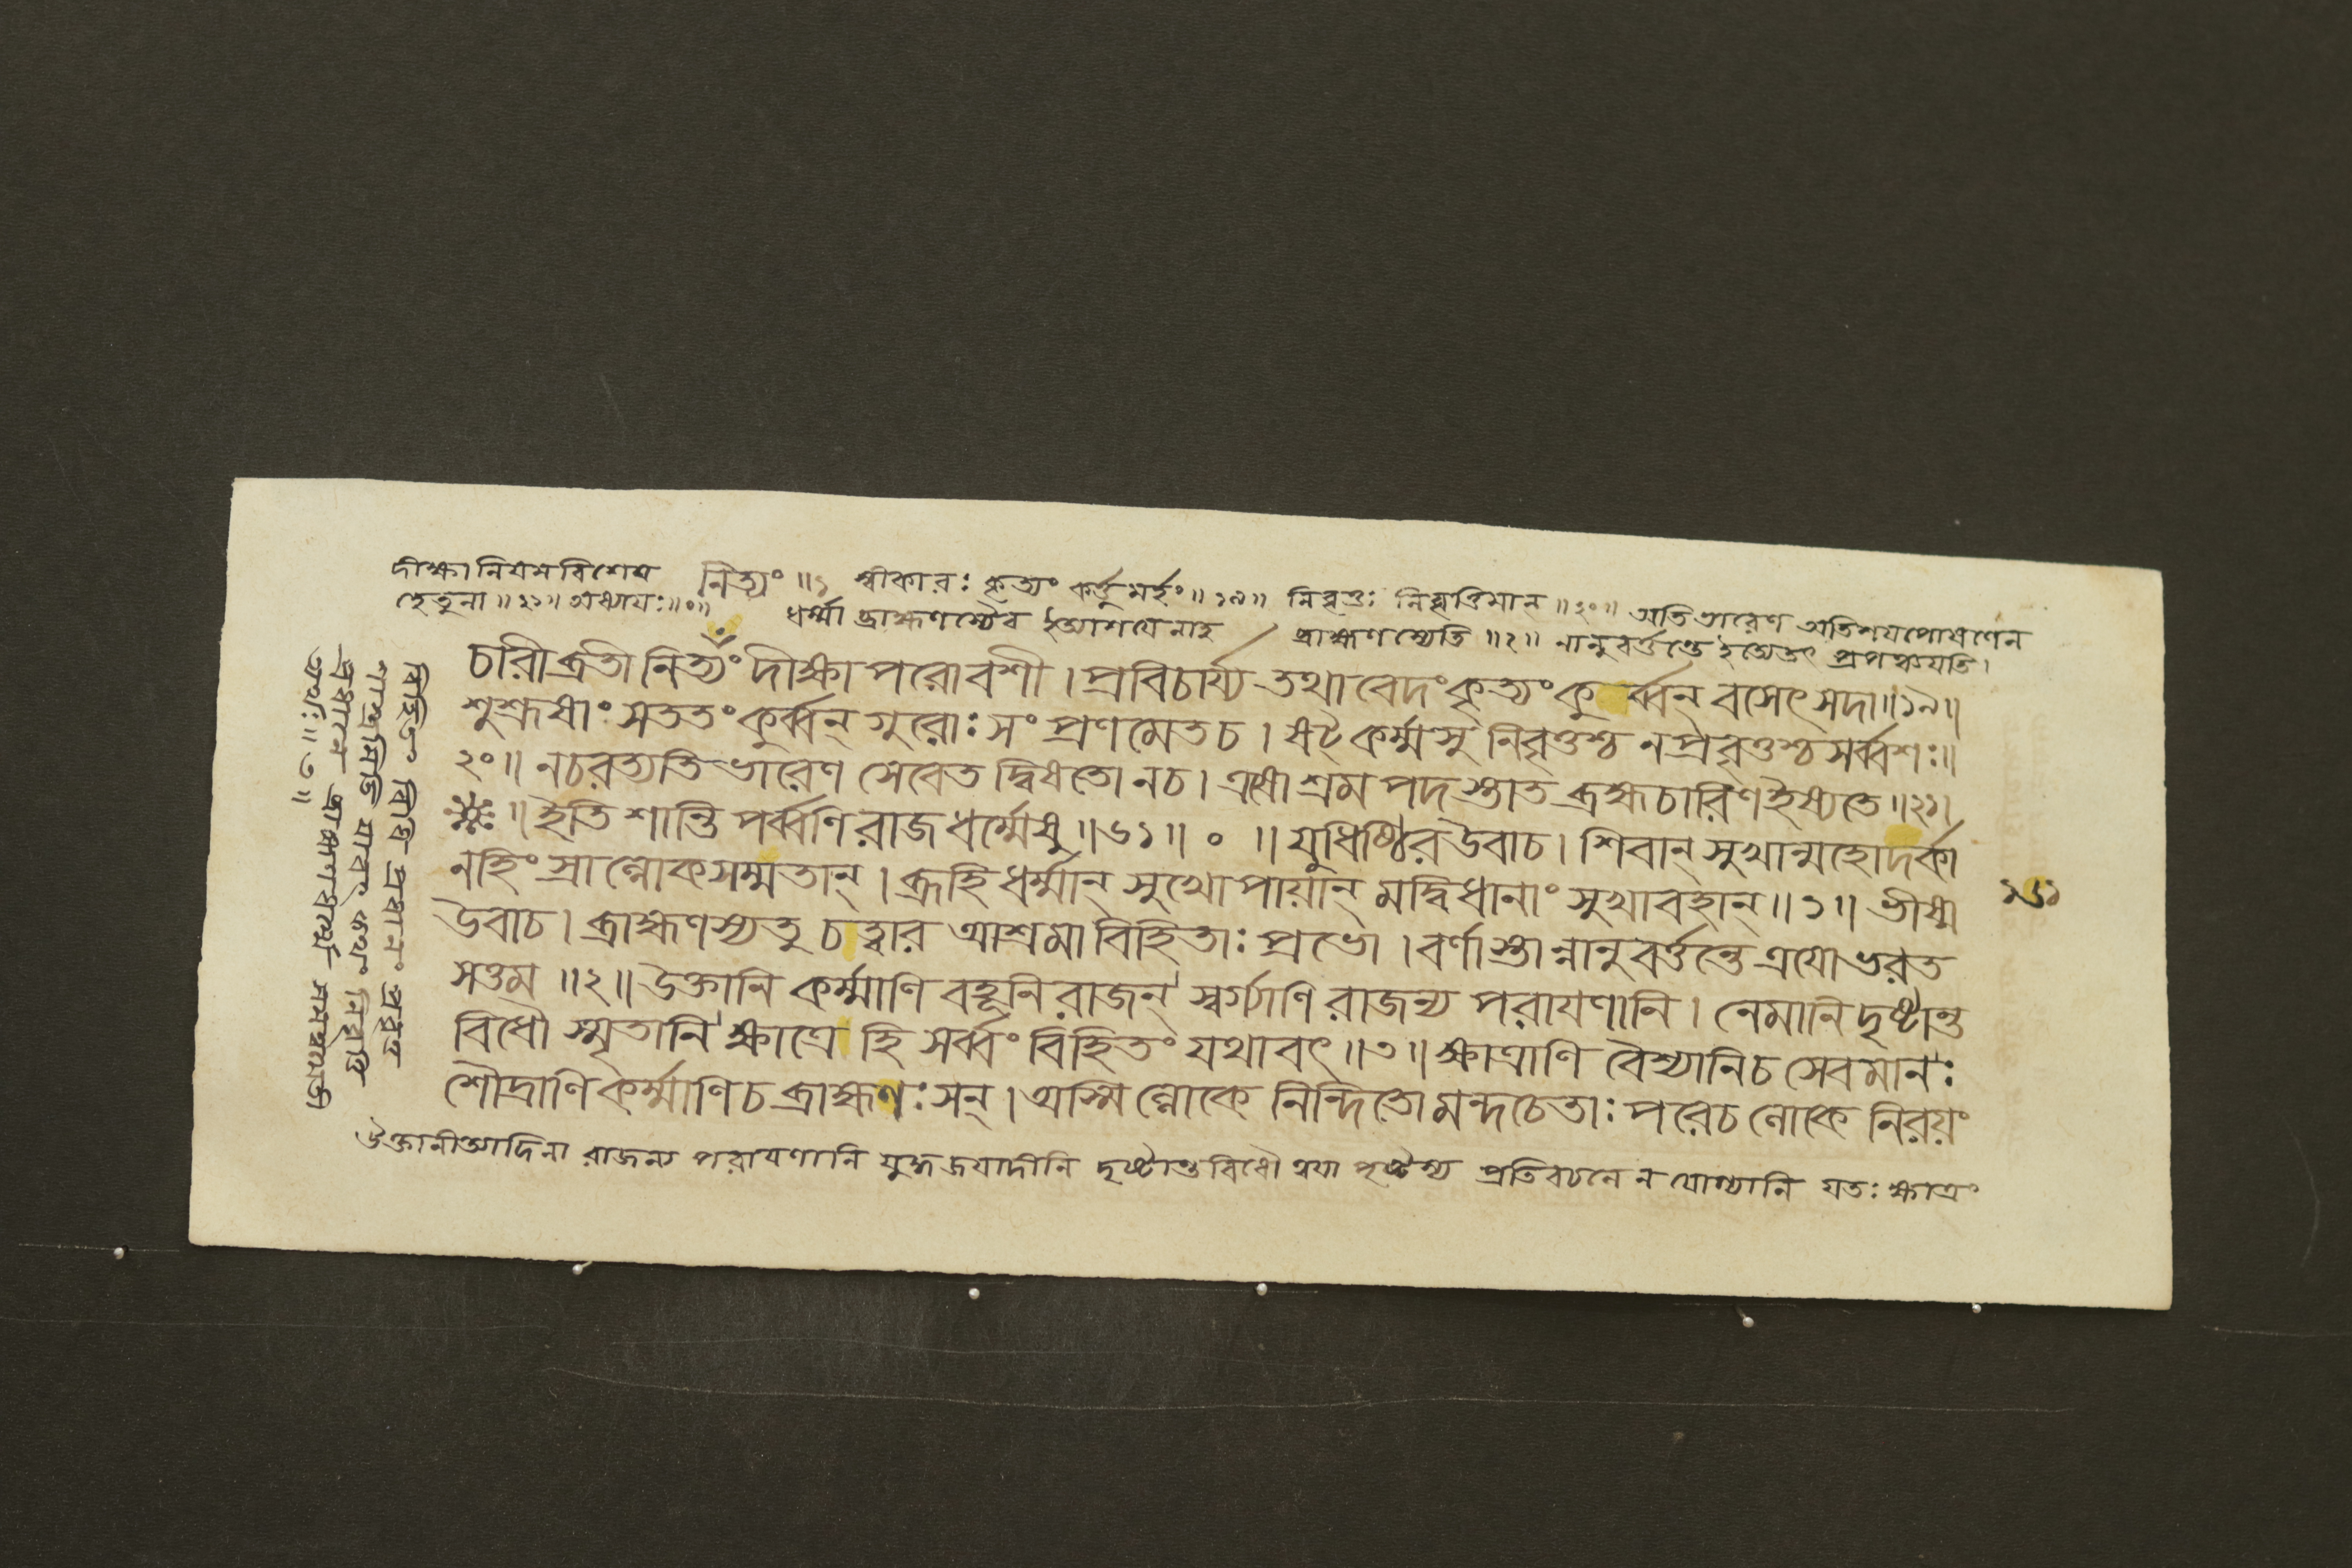 দীক্ষানিযমবিশেষ নিত্যং ॥১ স্বীকারঃ কৃত্যং কর্ত্তুমর্হং ॥১৯॥ নিবৃত্তঃ নিবৃত্তিমান ॥২০॥ অতিভারেণ অতিশযপোষণেন
হেতুনা ॥২১॥ অধ্যাযঃ॥০॥ ধর্ম্মা ব্রাহ্মণস্যৈব ইত্যাশযেনাহ ব্রাহ্মণস্যেতি ॥২॥ নানুবর্ত্তন্তে ইত্যেতৎ প্রপঞ্চযতি।
চারী ব্রতী নিত্যং দীক্ষাপরোবশী । প্রবিচার্য্য তথা বেদং কৃত্যং কুর্ব্বন্ বসেৎ সদা॥১৯॥
শুশ্রূষাং সততং কুর্ব্বন্ গুরোঃ সংপ্রণমেত চ । ষট্কর্ম্মসু নিবৃত্তশ্চ নপ্রবৃত্তশ্চ সর্ব্বশঃ॥
২০॥ নচরত্যতিভারেণ সেবেত দ্বিষতো নচ । এষোশ্রমপদস্তাত ব্রহ্মচারিণ ইষ্যতে ॥২১॥
॥ ইতি শান্তিপর্ব্বণি রাজধর্ম্মেষু ॥৬১॥ ০ ॥ যুধিষ্ঠির উবাচ। শিবান্ সুখান্মহোদর্কা
নহিংস্রাল্লোকসম্মতান্ । ব্রূহি ধর্ম্মান্ সুখোপায়ান্ মদ্বিধানাং সুখাবহান্ ॥১॥ ভীষ্ম
উবাচ। ব্রাহ্মণস্যতু চত্বার আশ্রমা বিহিতাঃ প্রভো । বর্ণাস্তান্নানুবর্ত্তন্তে ত্রযো ভরত
সত্তম ॥২॥ উক্তানি কর্ম্মাণি বহূনি রাজন্ স্বর্গ্যাণি রাজন্য পরাযণানি । নেমানি দৃষ্টান্ত
বিধৌ স্মৃতানি ক্ষাত্রে হি সর্ব্বং বিহিতং যথাবৎ ॥৩॥ ক্ষাত্রাণি বৈশ্যানিচ সেবমানঃ
শৌদ্রাণি কর্ম্মাণি চ ব্রাহ্মণঃ সন্ । অস্মিল্লোকে নিন্দিতো মন্দচেতাঃ পরেচ লোকে নিরয়ং
উক্তানীত্যাদিনা রাজন্য পরাযণানি যুদ্ধজযাদীনি দৃষ্টান্তবিধৌ ত্বযা পৃষ্টস্য প্রতিবচনে ন যোগ্যানি যতঃ ক্ষাত্রং